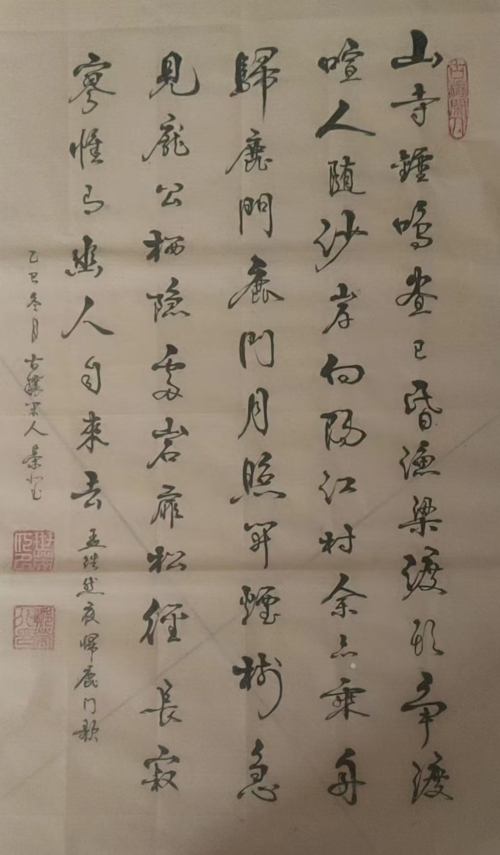 山寺鍾鳴晝已昏漁梁渡頭爭渡
喧人随沙岸向陽江村余亦乘舟
歸鹿門鹿門月照開煙樹忽
見龐公栖隐處岩扉松徑長寂
寥惟有幽人自來去
孟浩然夜歸鹿門歌
乙巳冬月